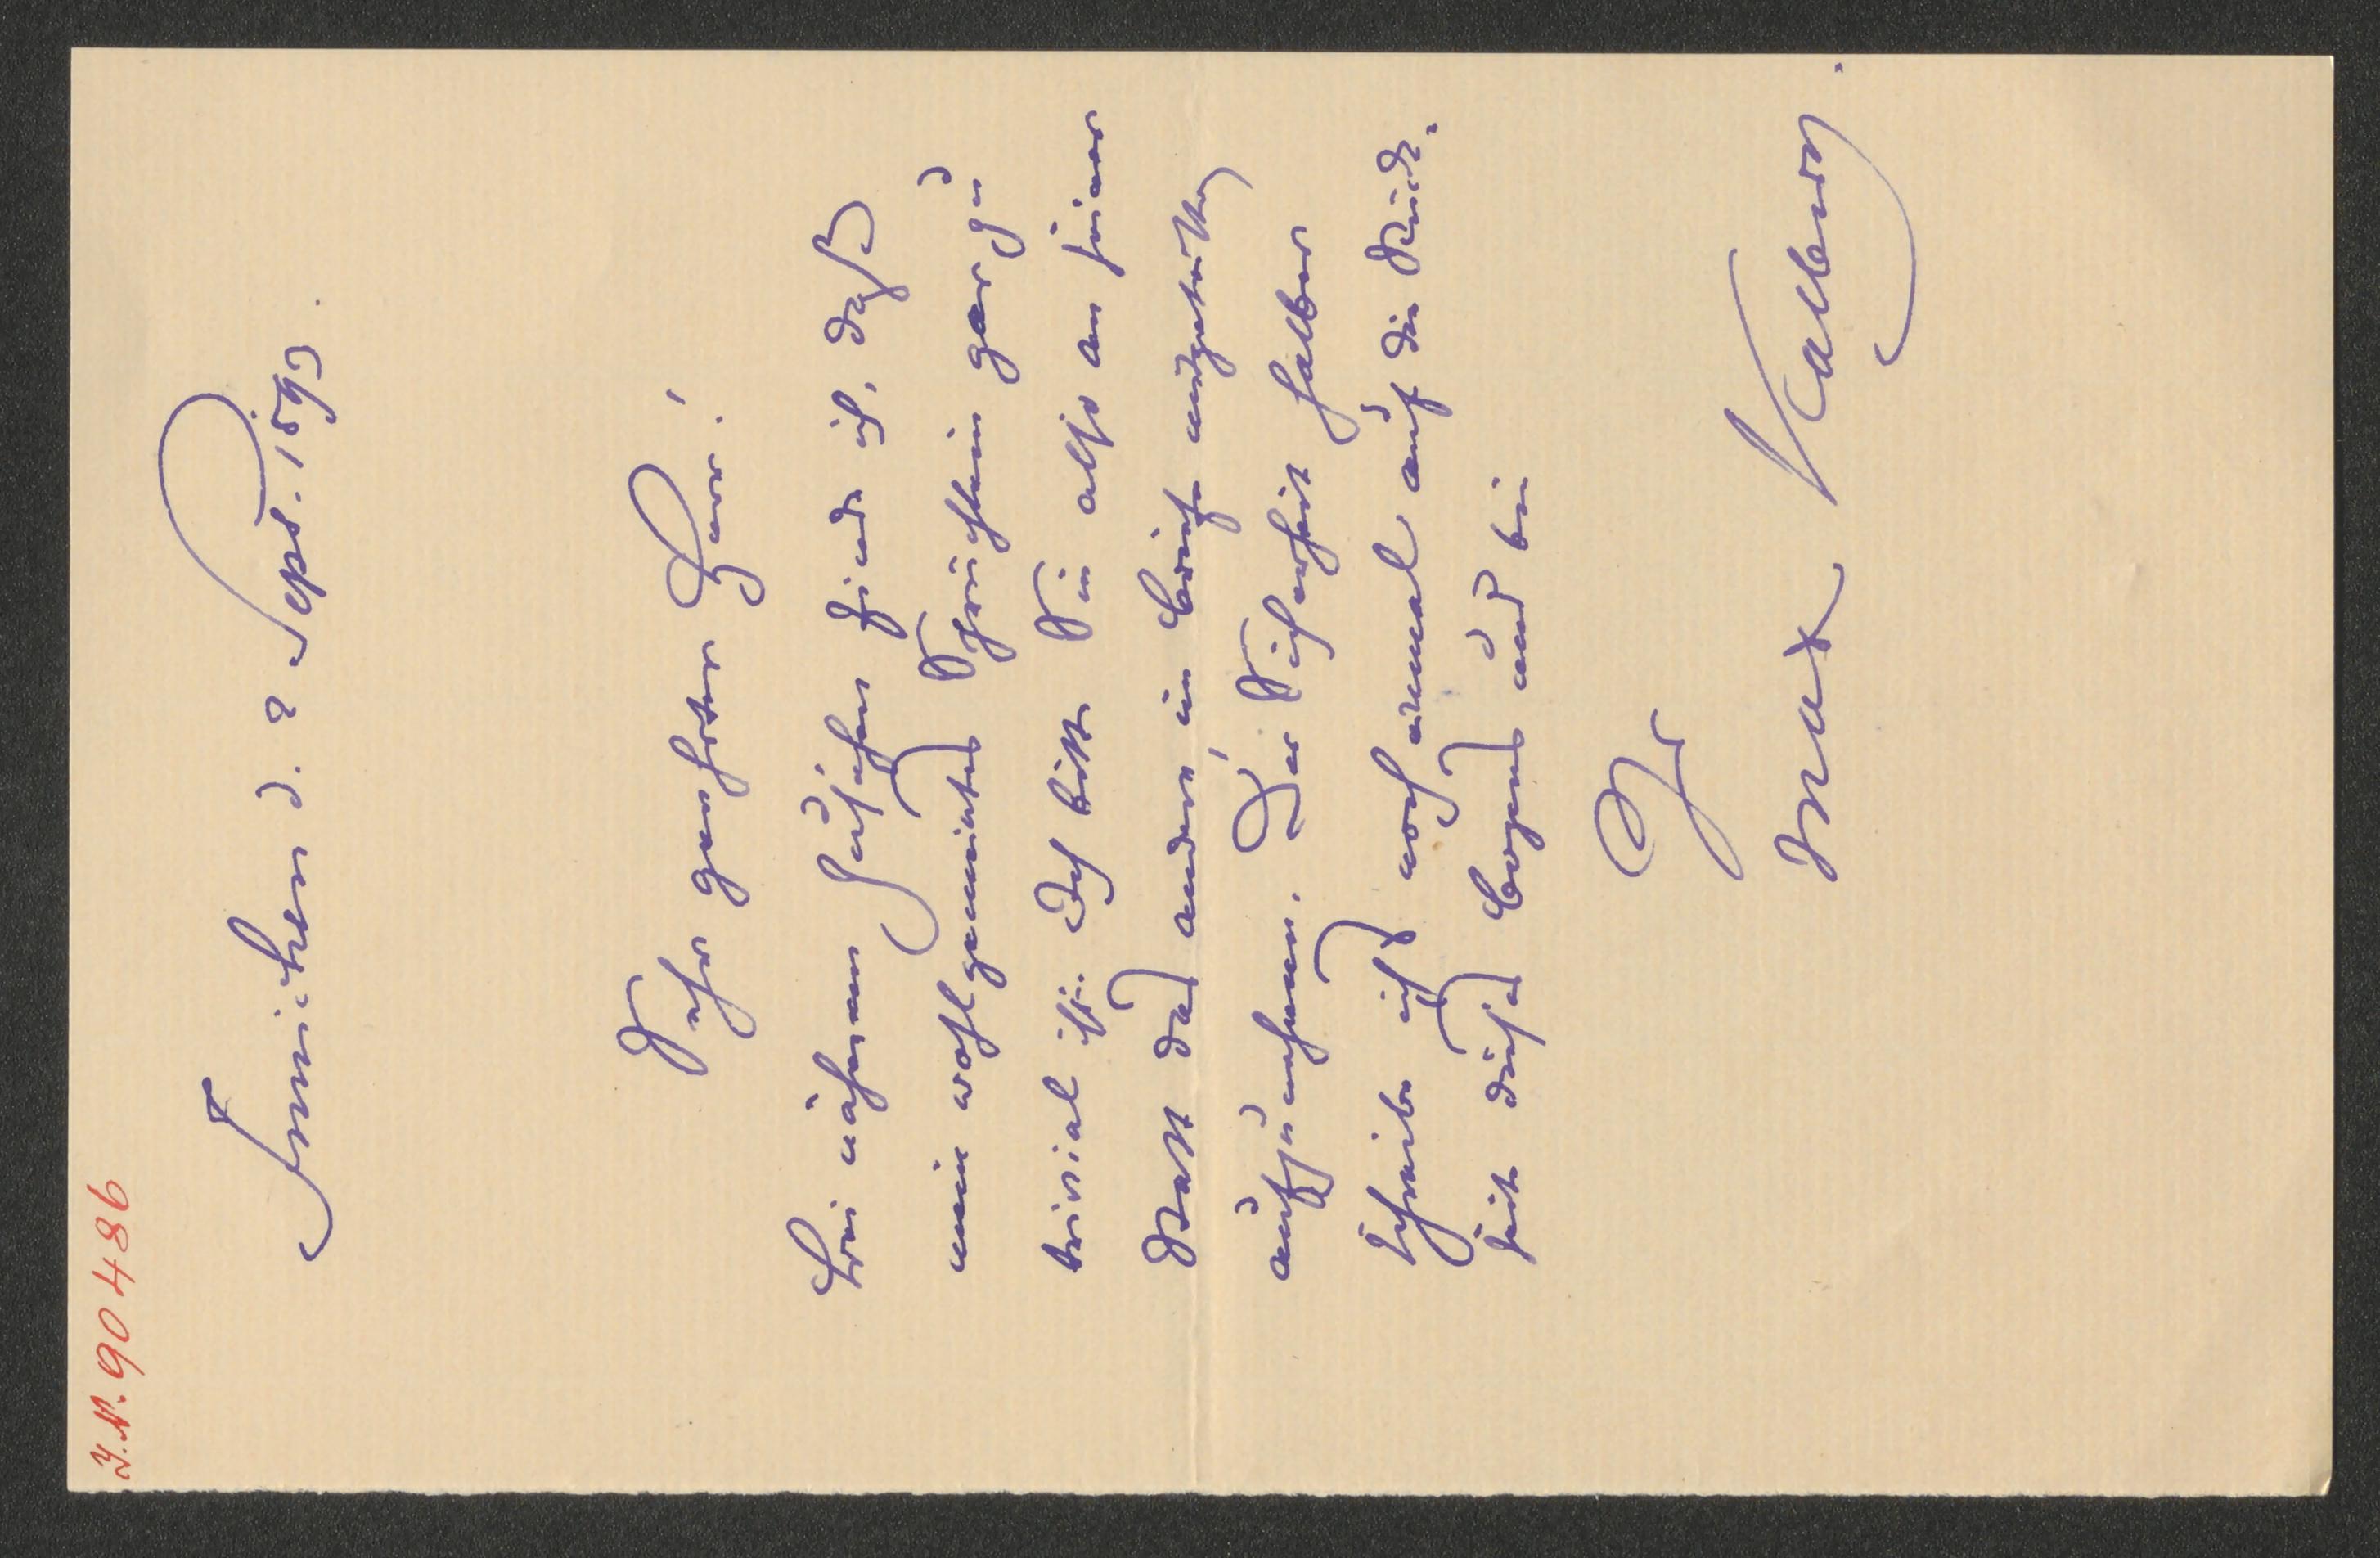 I.N. 90486
Innichen d. 2 Sept. 1893.
Sehr geehrter Herr!
Bei näherem Zusehen finde ich, daß
mein wohlgemeintes Sprüchlein gar zu
trivial ist. Ich bitte Sie also an seiner
Statt das andere, im Briefe mitgetheilte
aufzunehmen. Der Sicherheit halber
schreibe ich es noch einmal auf die Rück-
seite dieses Bogens und bin
Ihr
Max Kalbeck.